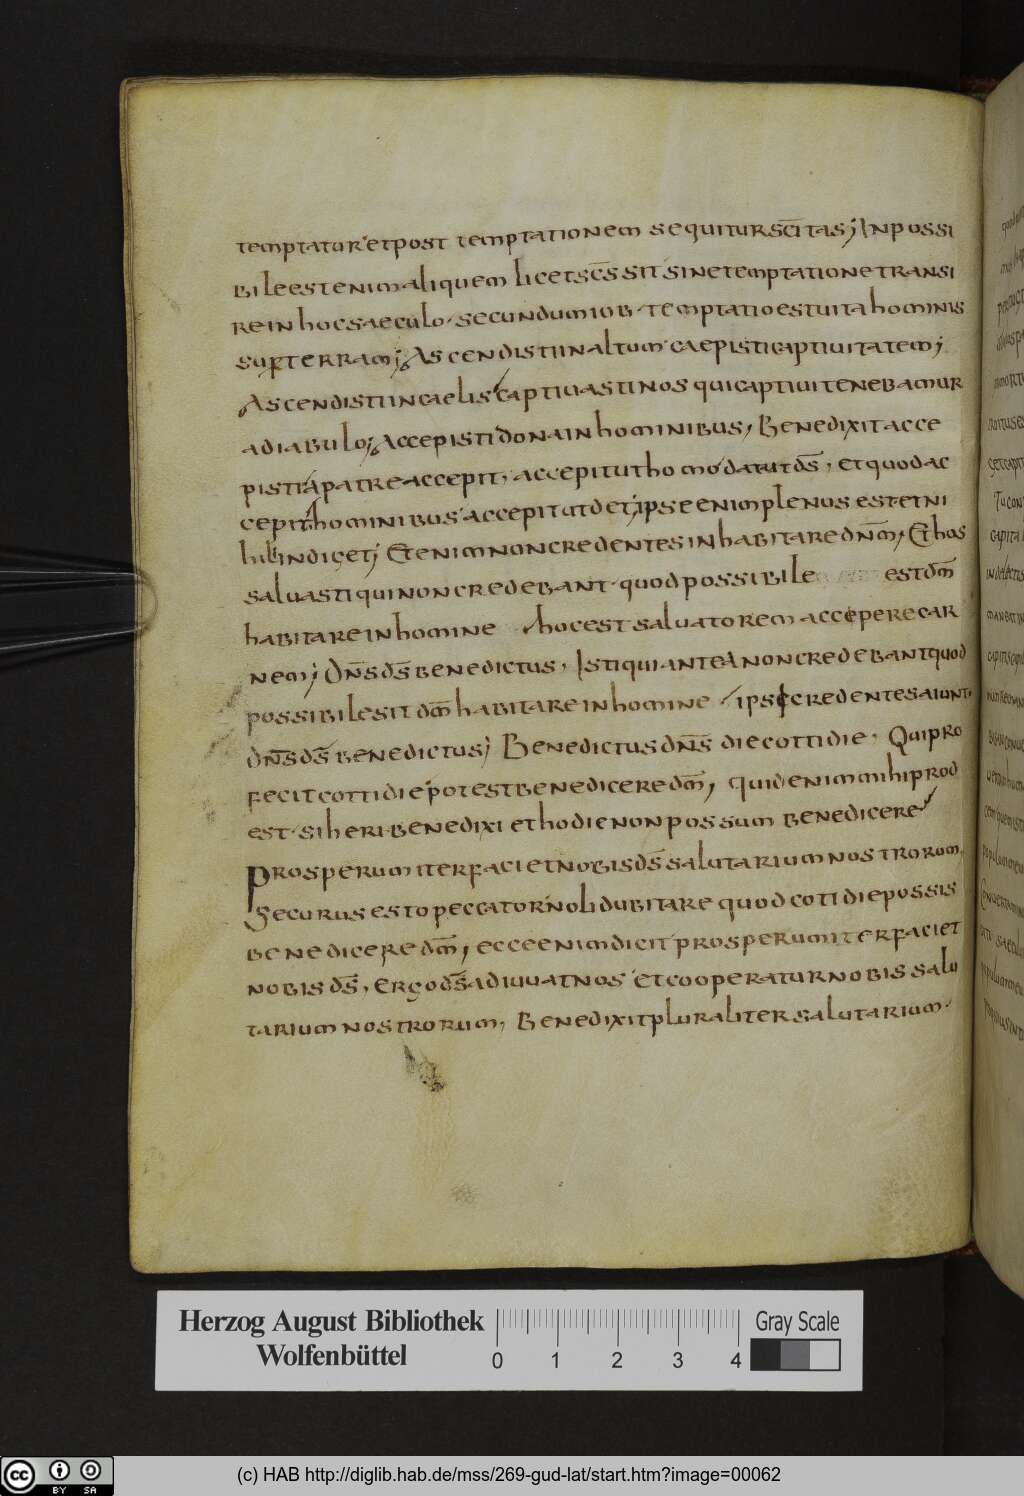 temptatur et post temptationem sequitur sc̄itas; Inpossi
bile est enim aliquem licet sc̄s sit sine temptatione transi
re in hoc saeculo. secundum iob. temptatio est uita hominis
super terram; Ascendisti in altum caepisti captiuitatem;
Ascendisti in caelis captiuasti nos qui captiui tenebamur
a diabulo; Accepisti dona in hominibus, Benedixit acce
pisti a patre accepit, accepit ut homo dat ut d̄s, et quod ac
cepit hominibus accepit ut det ipse enim plenus est et ni
hil indiget; Etenim non credentes inhabitare dn̄m, Et hos
saluasti qui non credebant quod possibile est dm̄
habitare in homine hoc est saluatorem accepere car
nem; Dn̄s d̄s benedictus, Isti qui antea non credebant quod
possibile sit dm̄ habitare in homine ipsi credentes aiunt.
dn̄s d̄s benedictus; Benedictus dn̄s die cottidie, Qui pro
fecit cottidie potest benedicere dm̄, quid enim mihi prod
est si heri benedixi et hodie non possum benedicere
Prosperum iter faciet nobis d̄s salutarium nostrorum,
Securus esto peccator noli dubitare quod cotidie possis
benedicere dm̄, ecce enim dicit prosperum iter faciet
nobis d̄s, ergo d̄s adiuuat nos et cooperatur nobis salu
tarium nostrorum, Benedixit pluraliter salutarium
Herzog August Bibliothek
Wolfenbüttel
0 1 2 3 4
Gray Scale
cc BY SA
(c) HAB http://diglib.hab.de/mss/269-gud-lat/start.htm?image=00062